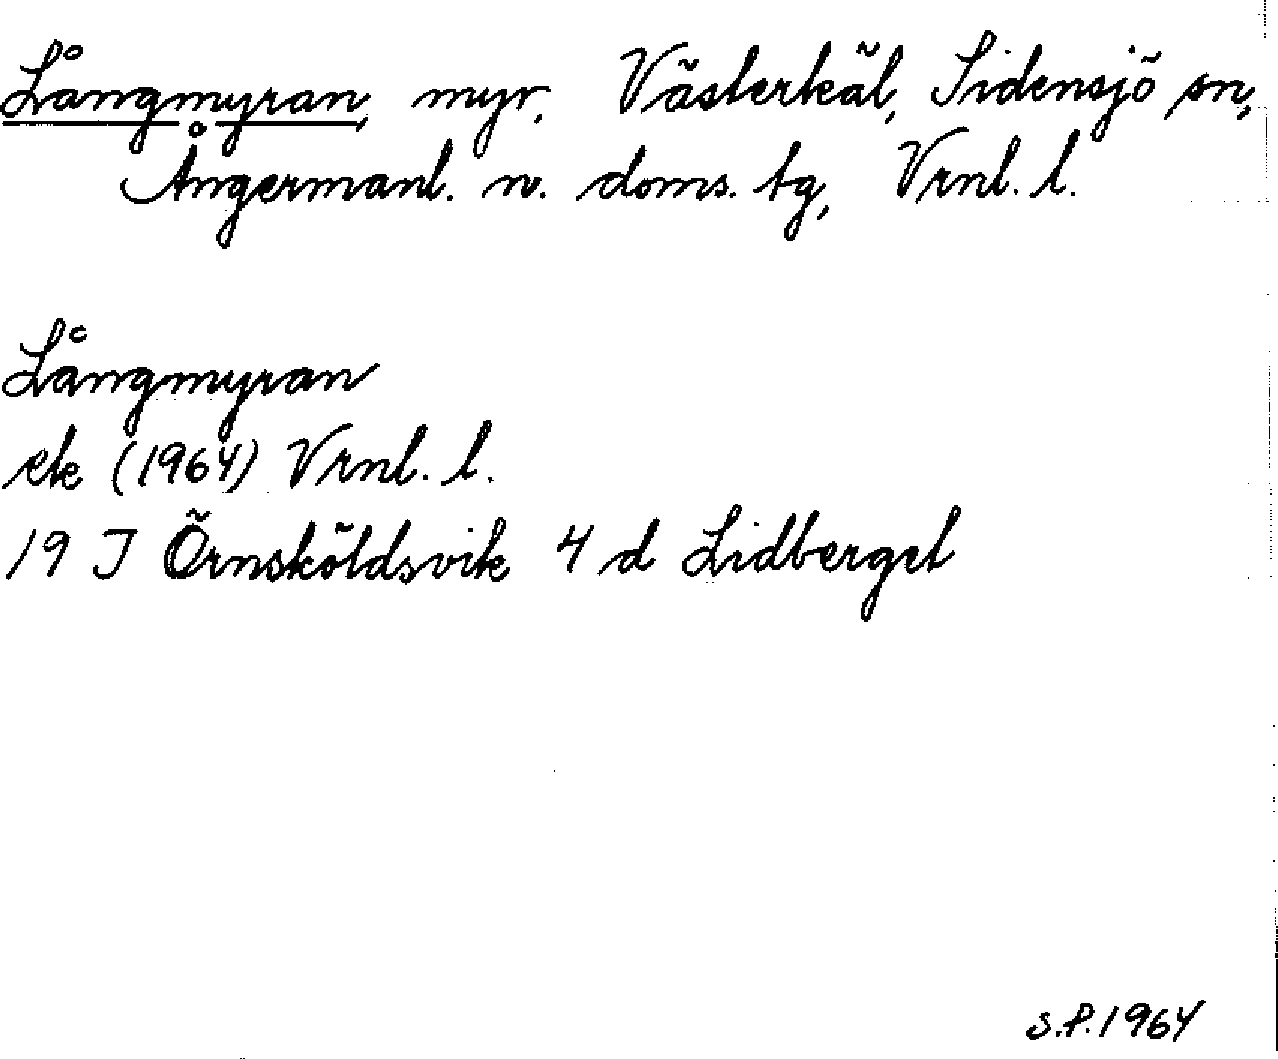 Långmyran, myr, Västerkäl, Sidensjö sn,
Ångermanl. n. doms. tg, Vrnl. l.
Långmyran
ek (1964) Vrnl. l.
19 J Örnsköldsvik 4 d Lidberget
S.P. 1964